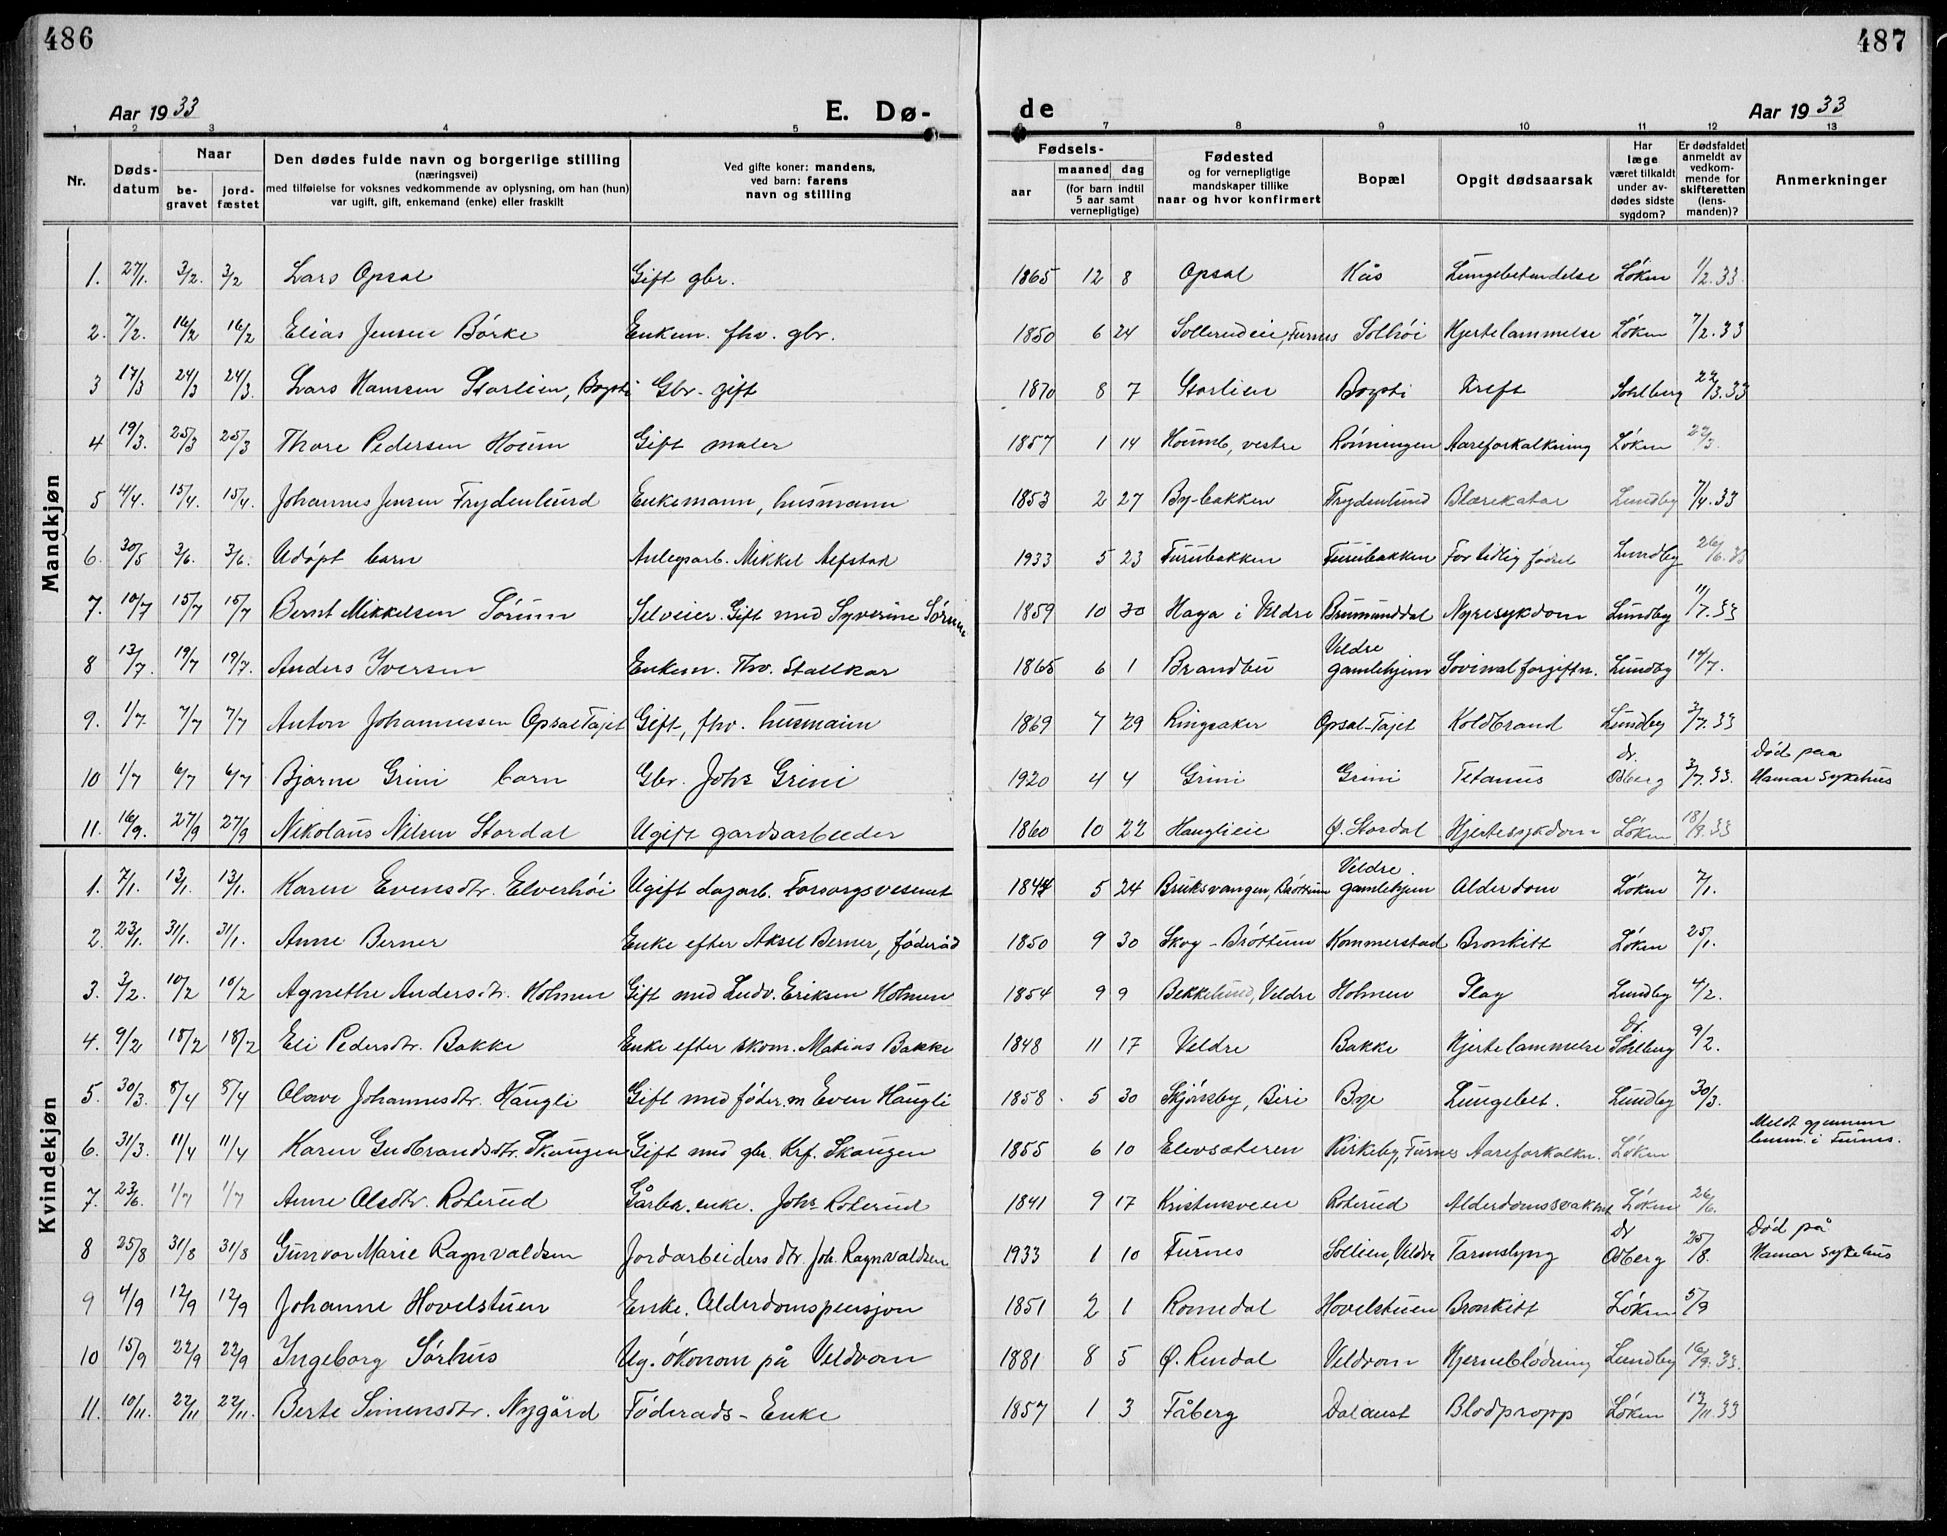 486
487
Aar 1933
E. Dø-
de
Aar 1933
1 2 3 4 5 6 7 8 9 10 11 12 13
Nr. | Døds-datum | Naar be-gravet | jord-fæstet | Den dødes fulde navn og borgerlige stilling (næringsvei) med tilføielse for voksnes vedkommende av oplysning, om han (hun) var ugift, gift, enkemand (enke) eller fraskilt | Ved gifte koner: mandens, ved barn: farens navn og stilling | Fødsels- aar | maaned | dag (for barn indtil 5 aar samt vernepligtige) | Fødested og for vernepligtige mandskaper tillike naar og hvor konfirmert | Bopæl | Opgit dødsaarsak | Har læge været tilkaldt under av-dødes sidste sygdom? | Er dødsfaldet anmeldt av vedkom-mende for skifteretten (lens-manden)? | Anmerkninger
Mandkjøn
1. 27/1. 3/2. 3/2 Lars Opsal Gift gbr. 1865 12 8 Opsal Kås Lungebetendelse Løken 1/2.33.
2. 7/2. 16/2 16/2 Elias Jensen Børke Enkem. fhv. gbr. 1850 6 24 Sollerudeie, Furnes Solhøi Hjertelammelse Løken 7/2.33
3 17/3 24/3 24/3. Lars Hanssen Storlien, Bogsti Gbr. gift 1870 8 7 Storlien Bogsti Kreft Sohlberg 22/3.33
4 19/3. 25/3 25/3 Thore Pedersen Houm Gift maler 1857 1 14 Houmb, vestre Rønningen Aareforkalkning Løken 22/3.
5 4/4. 15/4. 15/4. Johannes Jensen Frydenlund Enkemann, husmann 1853 2 27 By-bakken Frydenlund Blærekatar Lundby 7/4.33
6. 30/5 3/6. 3/6. Udøpt barn Anlegsarb. Mikkel Alfstad 1933 5 23 Furubakken Furubakken For tidlig födsel Lundby 26/6.33
7. 10/7 15/7 15/7 Bernt Mikkelsen Sørum Selveier. Gift med Syverine Sørum 1859 10 30 Haga i Veldre Brumunddal Nyresykdom Lundby 11/7.33
8 13/7. 19/7 19/7. Anders Iversen Enkem. Fhv. Stallkar 1865 6 1 Brandbu Veldre gamlehjem Sovinalforgiftn. Lundby 14/7.
9. 1/7. 7/7 7/7 Anton Johannessen Opsal-Tajet Gift, fhv. husmann 1869 7 29 Ringsaker Opsal-Tajet Koldbrand Lundby 3/7.33
10 1/7 6/7 6/7 Bjarne Grini barn Gbr. Johs Grini 1920 4 4 Grini Grini Tetanus Dr. Odberg 3/7.33. Död paa Hamar Sykehus
11. 16/9. 27/9 27/9 Nikolaus Nilsen Stordal Ugift gardsarbeider 1860 10 22 Hauglieie Ø. Stordal Hjertesykdom Løken 18/9.33
Kvindekjøn
1. 7/1. 13/1. 13/1. Karen Evensdtr. Elverhöi Ugift dagarb. Forsorgsvesenet 1844 5 24 Bruksvangen, Brøttum Veldre. gamlehjem Alderdom Løken 7/1.
2. 23/1. 31/1. 31/1. Anne Berner Enke efter Aksel Berner, föderåd 1850 9 30 Skog - Brøttum Kommerstad Bronkitt Løken 25/1.
3. 3/2. 10/2 10/2 Agnethe Andersdtr. Holmen Gift med Ludv. Eriksen Holmen 1854 9 9 Bekkelund, Veldre Holmen Slag Lundby 4/2.
4. 9/2 18/2 18/2 Eli Pedersdtr. Bakke Enke efter skom. Matias Bakke 1848 11 17 Veldre Bakke Hjertelammelse Dr. Sohlberg 9/2.
5. 30/3. 8/4 8/4 Olave Johannesdtr. Haugli Gift med föder.m Even Haugli 1858 5 30 Skjönsby, Biri Bøje Lungebet. Lundby 30/3.
6. 31/3. 11/4 11/4 Karen Gudbrandsdtr. Skaugen Gift med gbr. Krf. Skaugen 1855 6 10 Elevsæteren Kirkeby, Furnes Aareforkalkn. Løken Meldt gjennem lensm. i Furnes.
7. 23/6. 1/7 1/7 Anne Olsdtr. Roterud Gårbr. enke. Johs Roterud 1841 9 17 Kristensveen Roterud Alderdomssvakhet Løken 26/6.
8 25/8 31/8 31/8 Gunvor Marie Ragnvaldsen Jordarbeiders dtr. Joh. Ragnvaldsen 1933 1 10 Furnes Sollien, Veldre Tarmslyng Dr Odberg 25/8. Död på Hamar Sykehus
9 4/9 12/9 12/9 Johanne Hovelstuen Enke. Alderdomspensjon 1851 2 1 Romedal Hovelstuen Bronkitt Løken 5/9
10 15/9 22/9 22/9 Ingeborg Sørhus Ug. økonom på Veldrom 1881 8 5 Ø. Rendal Veldrom Hjerneblödning Lundby 16/9.33.
11. 10/11. 22/11 22/11. Berte Simensdtr. Nygård Föderads-Enke 1857 1 3 Fåberg Dalaust Blodpropp Løken 13/11.33